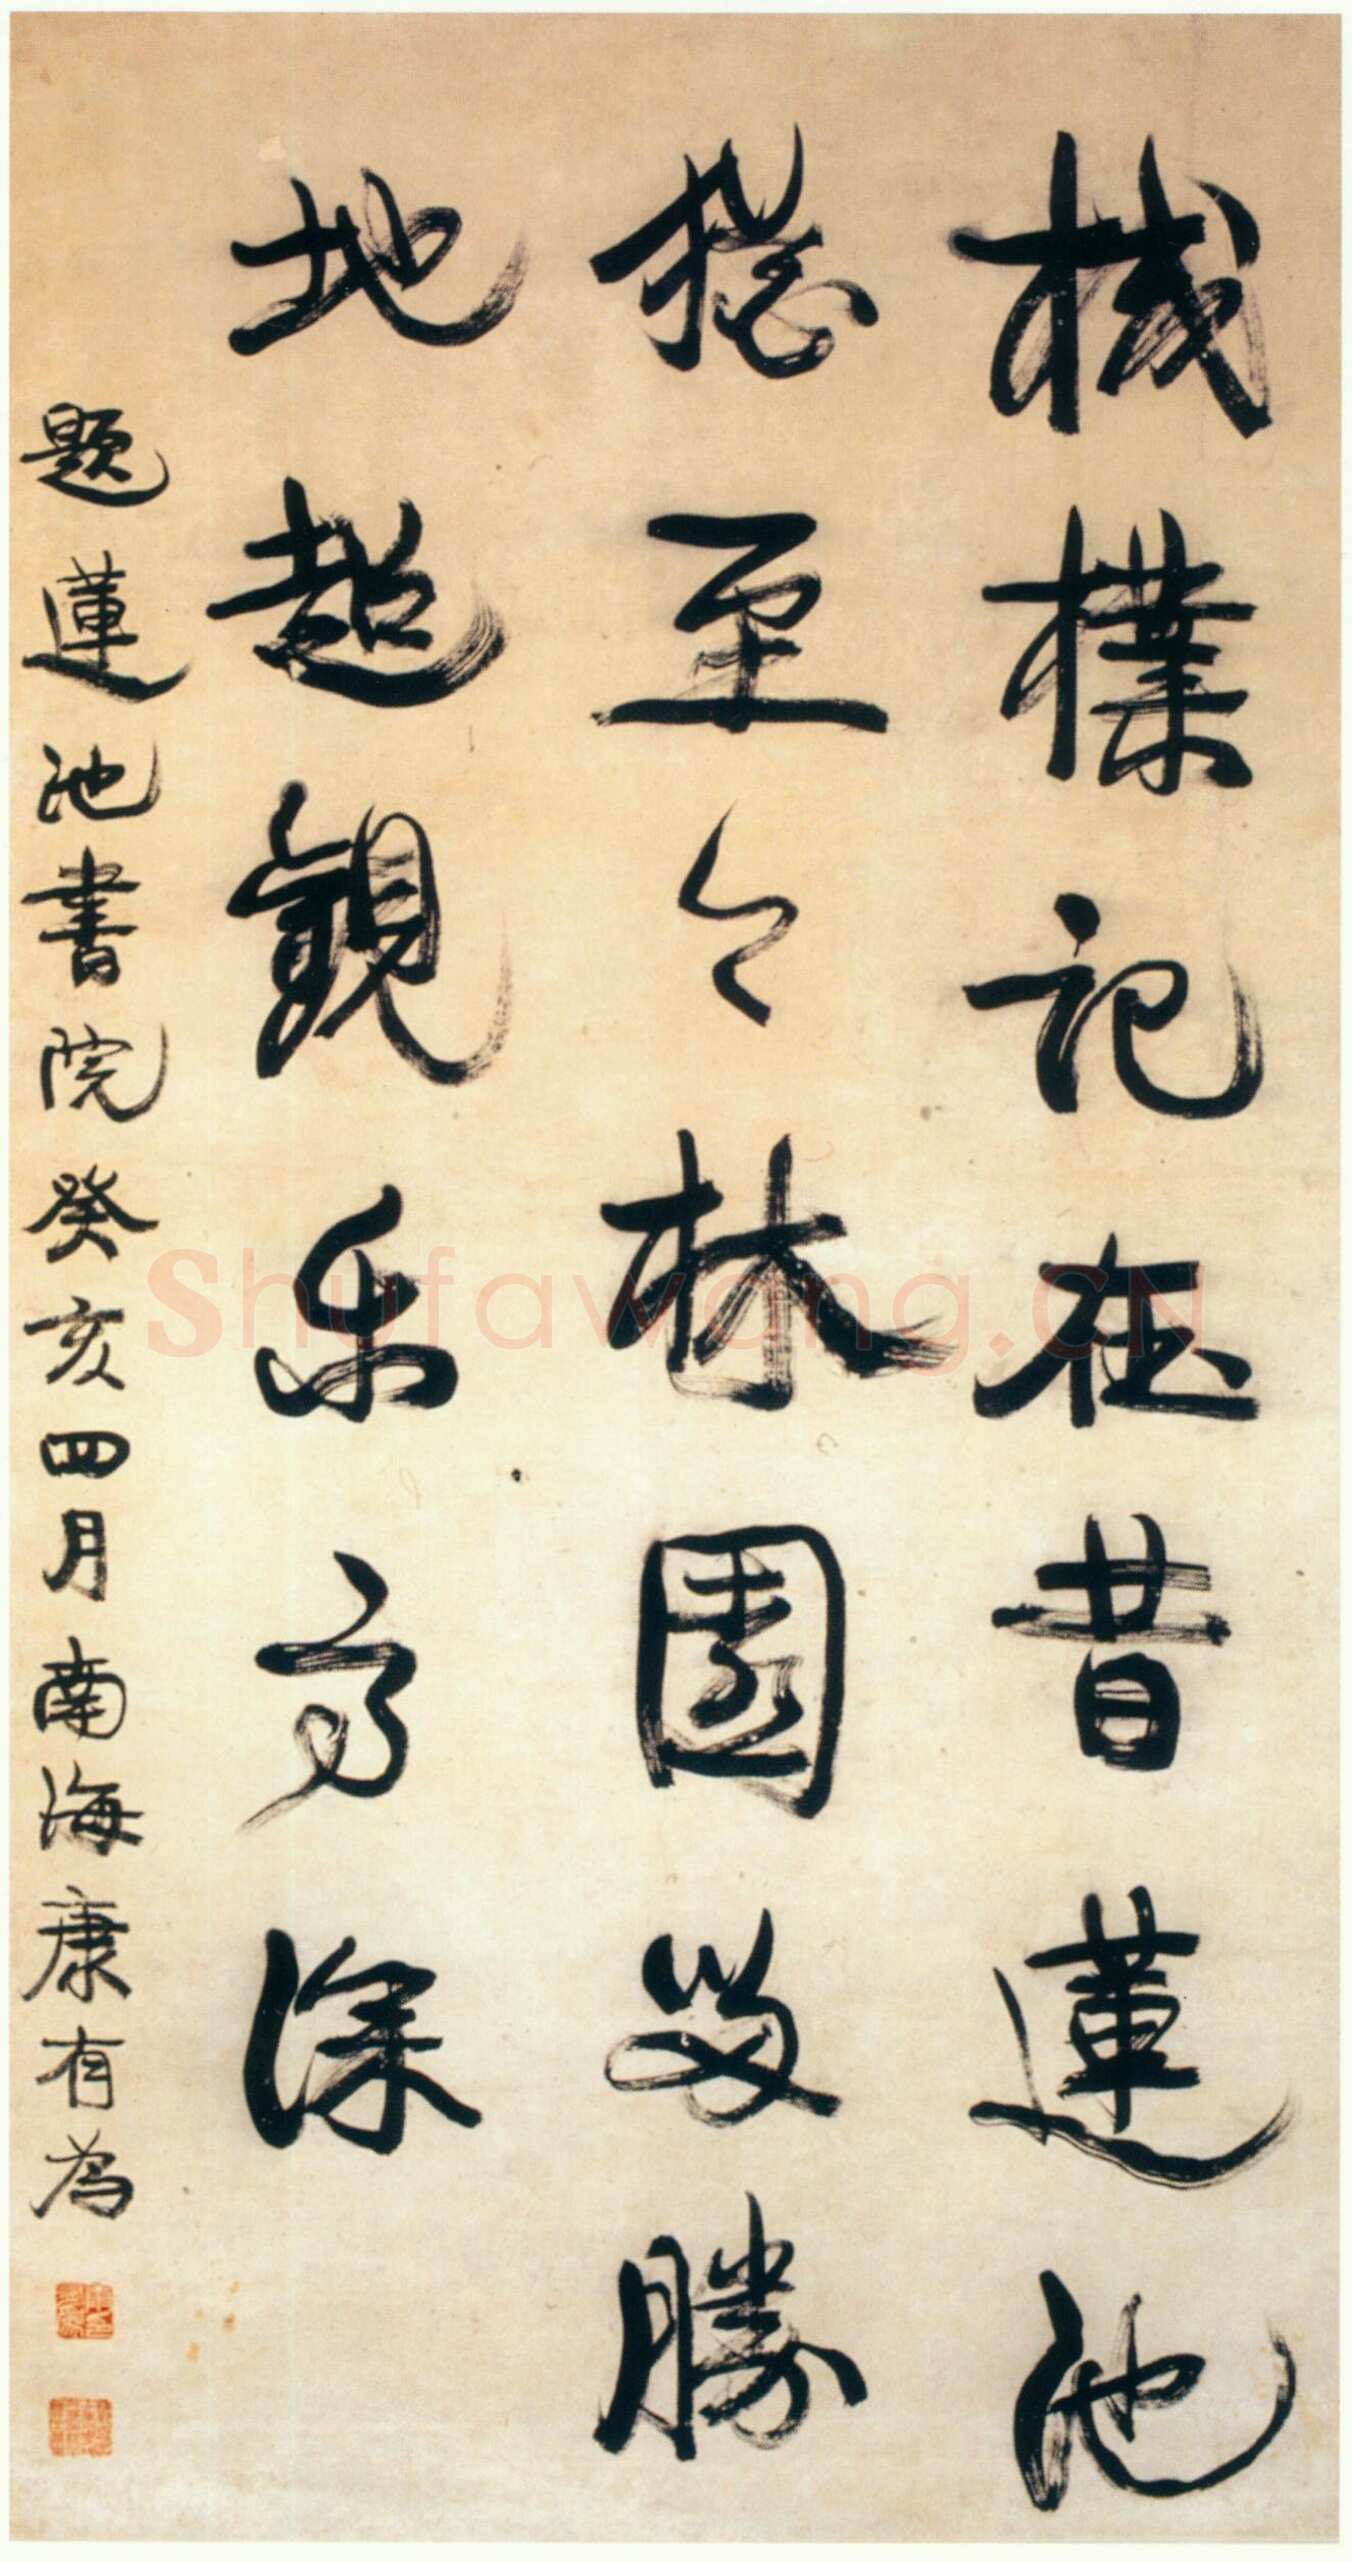 棫樸記在昔蓮池
猶至今林園勝
地超觀乐高深
題蓮池書院癸亥四月南海康有為
Shufawang.CN